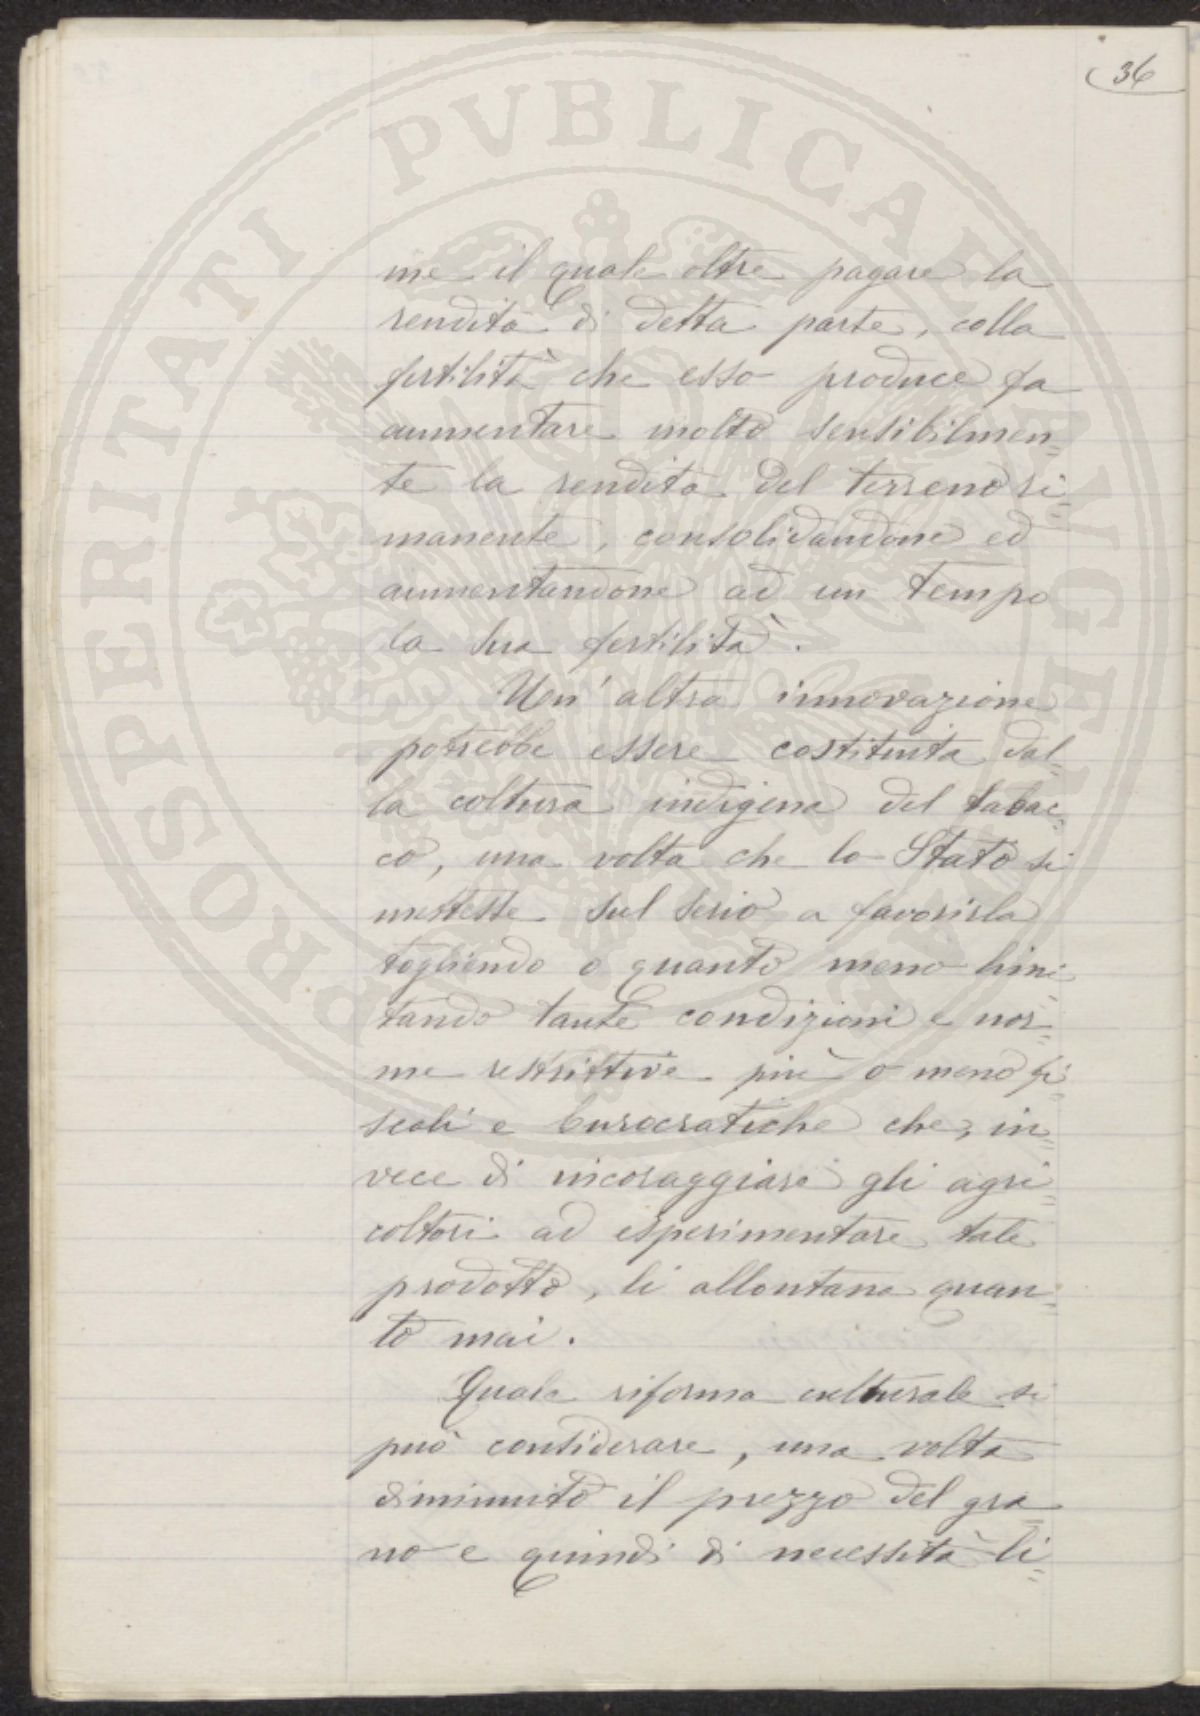 36
me il quale oltre pagare la
rendita di detta parte, colla
fertilità che esso produce fa
aumentare molto sensibilmen=
te la rendita del terreno ri=
manente, consolidandone ed
aumentandone ad un tempo
la sua fertilità.
Un' altra innovazione
potrebbe essere costituita dal=
la coltura indigena del tabac=
co, una volta che lo Stato si
mettesse sul serio a favorirla
togliendo o quanto meno limi=
tando tante condizioni e nor=
me restrittive più o meno fi=
scali e burocratiche che, in=
vece di incoraggiare gli agri=
coltori ad esperimentare tale
prodotto, li allontana quan=
to mai.
Quale riforma culturale si
può considerare, una volta
diminuito il prezzo del gra=
no e quindi di necessità li=
PROSPERITATI PVBLICAE AVGENDAE